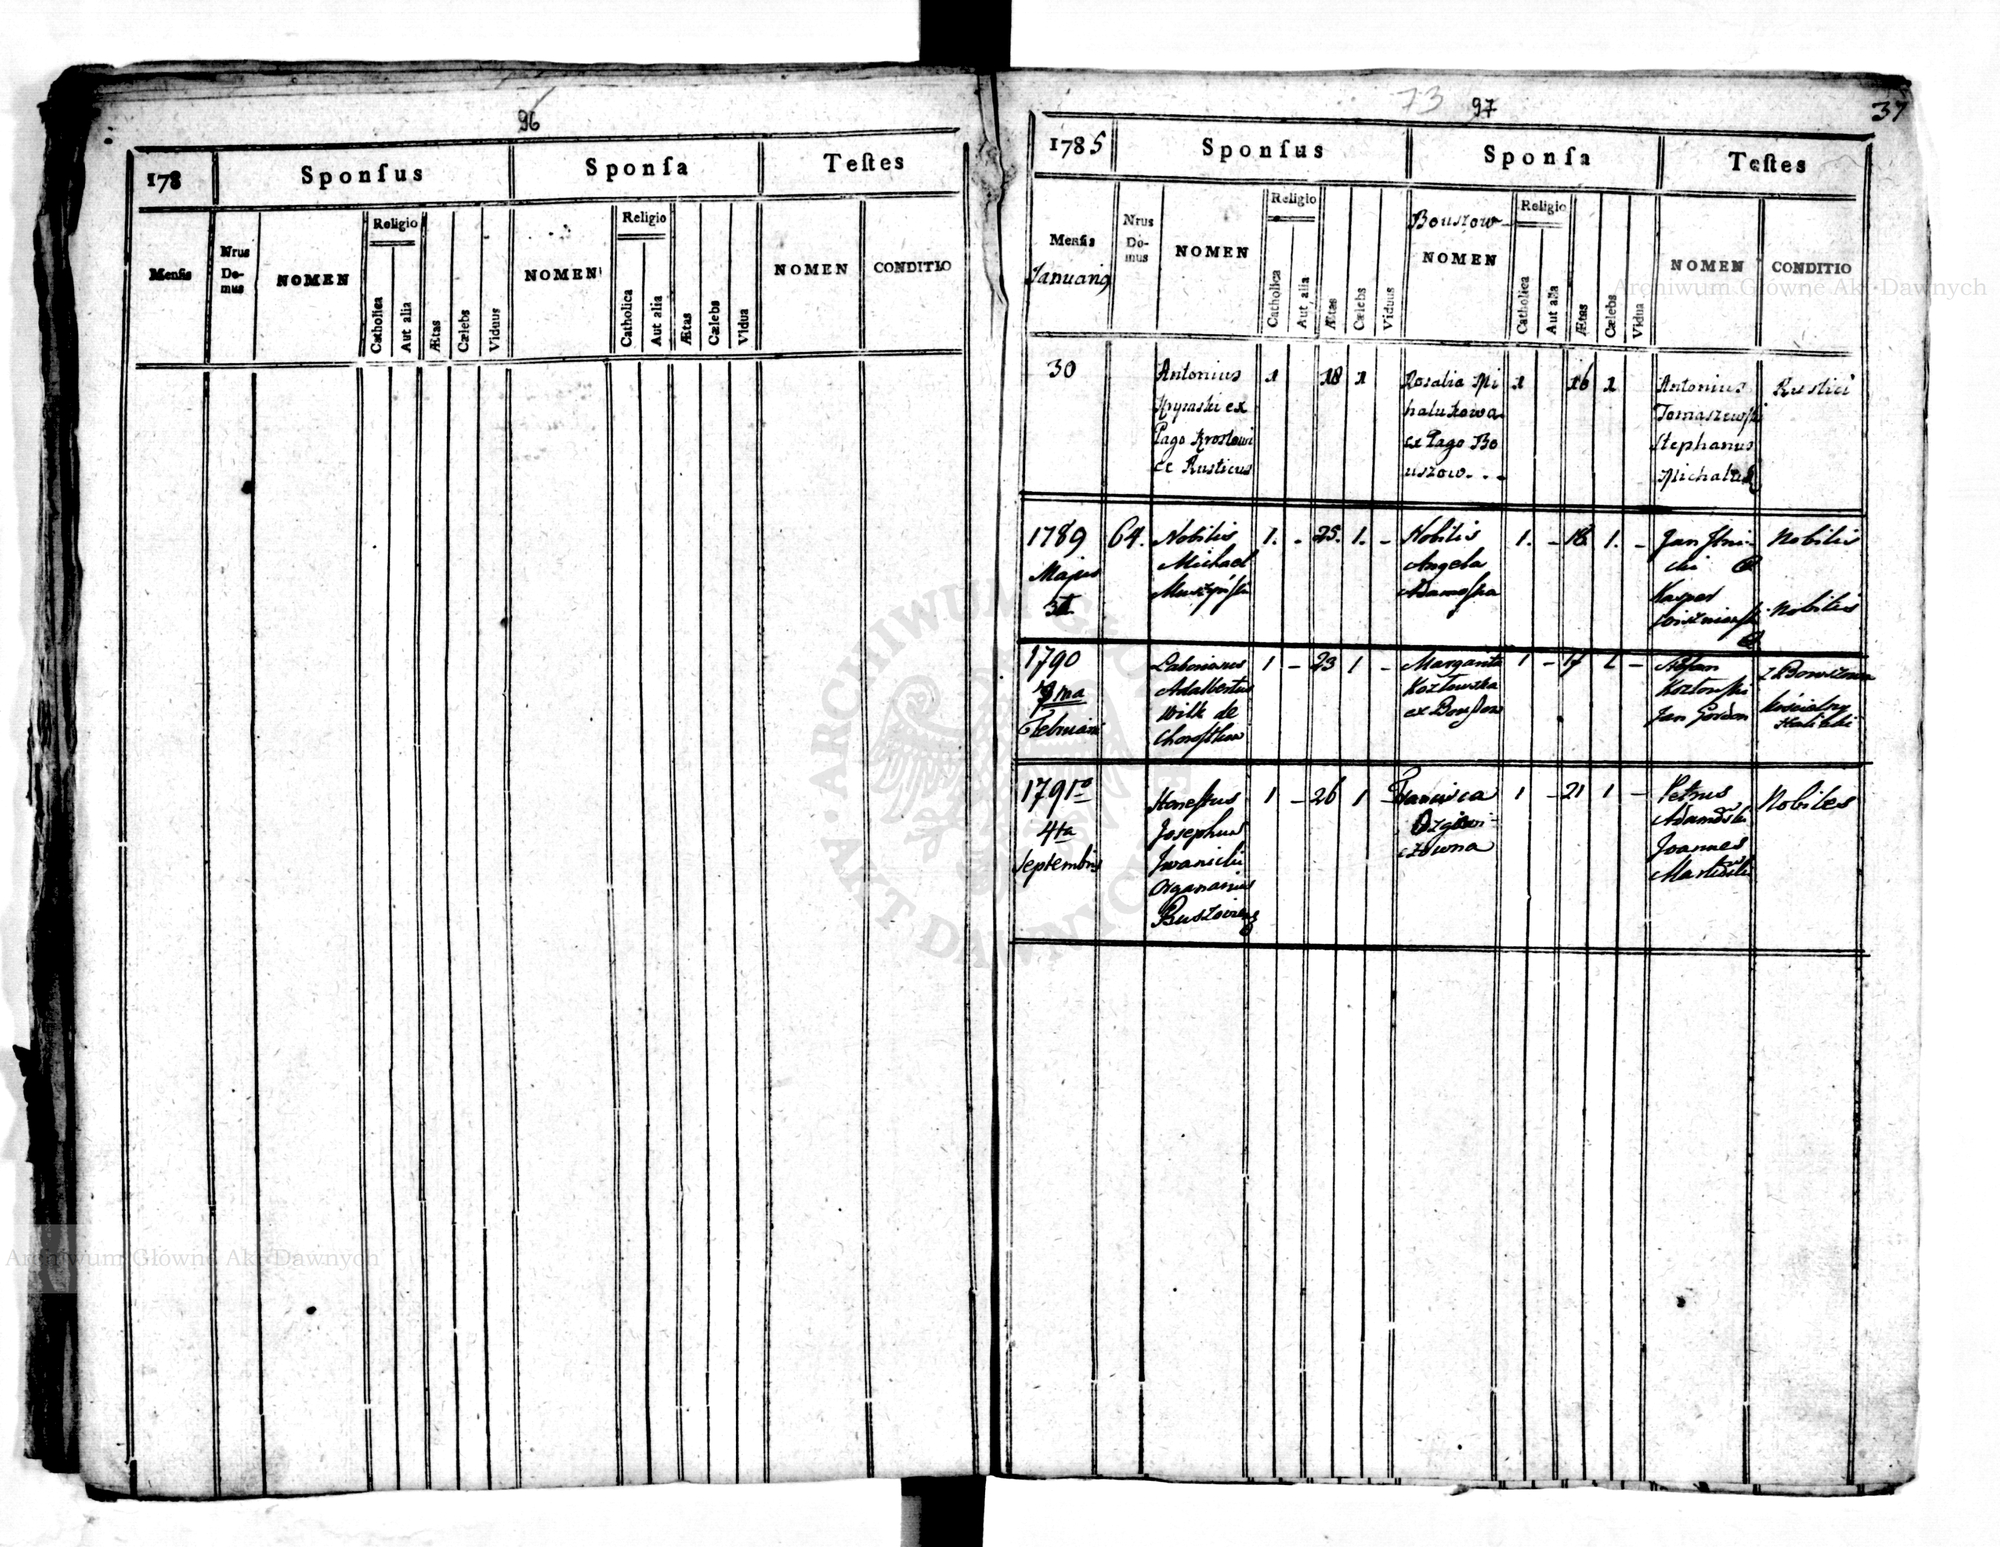 96
178
Sponſus
Sponſa
Teſtes
Menſis
Nrus Do- mus
NOMEN
Religio
Catholica
Aut alia
Ætas
Cælebs
Viduus
NOMEN
Religio
Catholica
Aut alia
Ætas
Cælebs
Vidua
NOMEN
CONDITIO
73
97
37
1785
Sponſus
Sponſa
Teſtes
Menſis
Januarij
Nrus Do- mus
NOMEN
Religio
Catholica
Aut alia
Ætas
Cælebs
Viduus
Bouszow
NOMEN
Religio
Catholica
Aut alia
Ætas
Cælebs
Vidua
NOMEN
CONDITIO
30
Antonius
ex
Pago
ce Rusticus
1 18 1
Rosalia Mi
halukowa
ex Pago Bo
uszow
1 16 1
Antonius
Tomaszewski
Stephanus
Michaluk
Rustici
1789
Majus
64.
Nobilis
Michael
1. - 25. 1. -
Nobilis
Angela
Adamoska
1. - 18. 1. -
Jan
Kasper
Nobilis
Nobilis
1790
Februarii
Laboriosus
Adalbertus
Wilk de
1 - 23 1 -
Margarita
Kozłowska
ex
1 - 17 1 -
Kozłowski
Jan Gordon
1791
4ta
Septembris
Honestus
Josephus
Iwanicki
Organarius
1 - 26 1 -
Francisca
1 - 21 1 -
Petrus
Adamoski
Joannes
Nobiles
Archiwum Główne Akt Dawnych
ARCHIWUM GŁÓWNE AKT DAWNYCH
Archiwum Główne Akt Dawnych